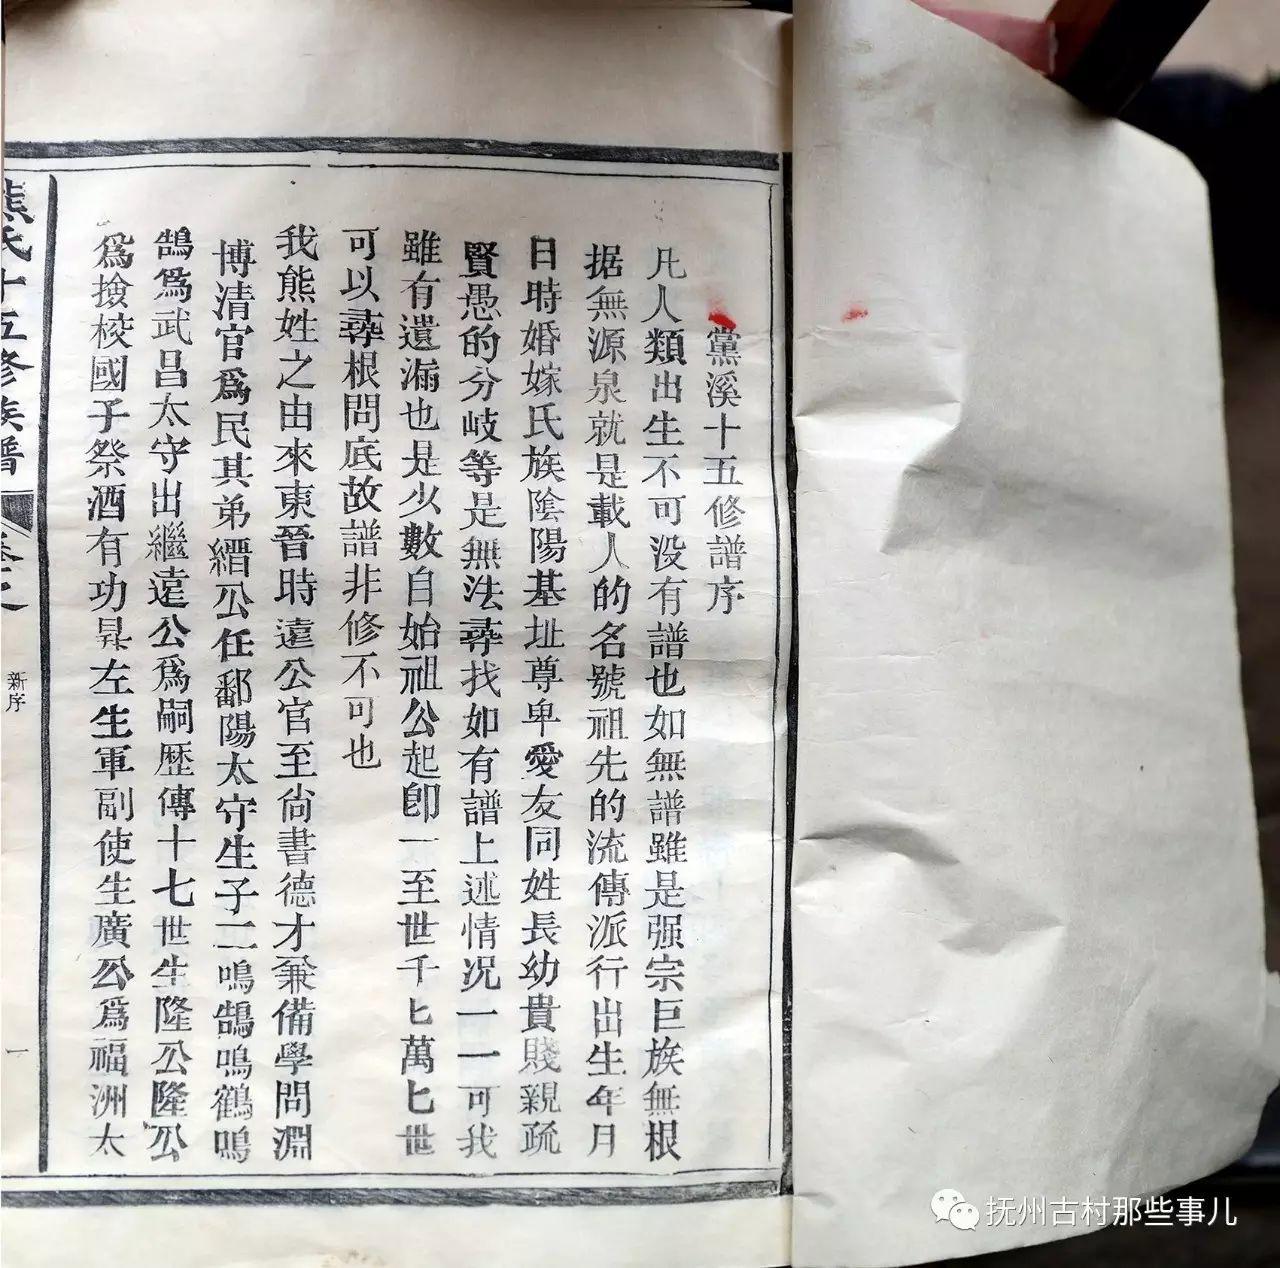 黨溪十五修譜序
凡人類出生不可没有譜也如無譜雖是强宗巨族無根
据無源泉就是載人的名號祖先的流傳派行出生年月
日時婚嫁氏族陰陽基址尊卑愛友同姓長幼貴賤親疏
賢愚的分岐等是無法尋找如有譜上述情况一一可我
雖有遺漏也是少數自始祖公起卽一至世千七萬七世
可以尋根問底故譜非修不可也
我熊姓之由來東晉時遠公官至尙書德才兼備學問淵
博清官爲民其弟縉公任鄱陽太守生子二鳴鵠鳴鶴鳴
鵠爲武昌太守出繼遠公爲嗣歷傳十七世生隆公隆公
爲撿校國子祭酒有功昇左生軍副使生廣公爲福洲太
熊氏十五修族譜
卷之
新序
一
抚州古村那些事儿